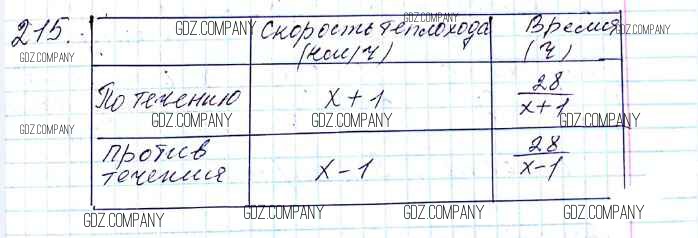 215. GDZ.COMPANY Скорость теплохода GDZ.COMPANY Время GDZ.COMPANY
GDZ.COMPANY (км/ч) (ч)
По течению x+1 28/x+1
GDZ.COMPANY GDZ.COMPANY GDZ.COMPANY GDZ.COMPANY
против течения x-1 28/x-1
GDZ.COMPANY GDZ.COMPANY GDZ.COMPANY GDZ.COMPANY